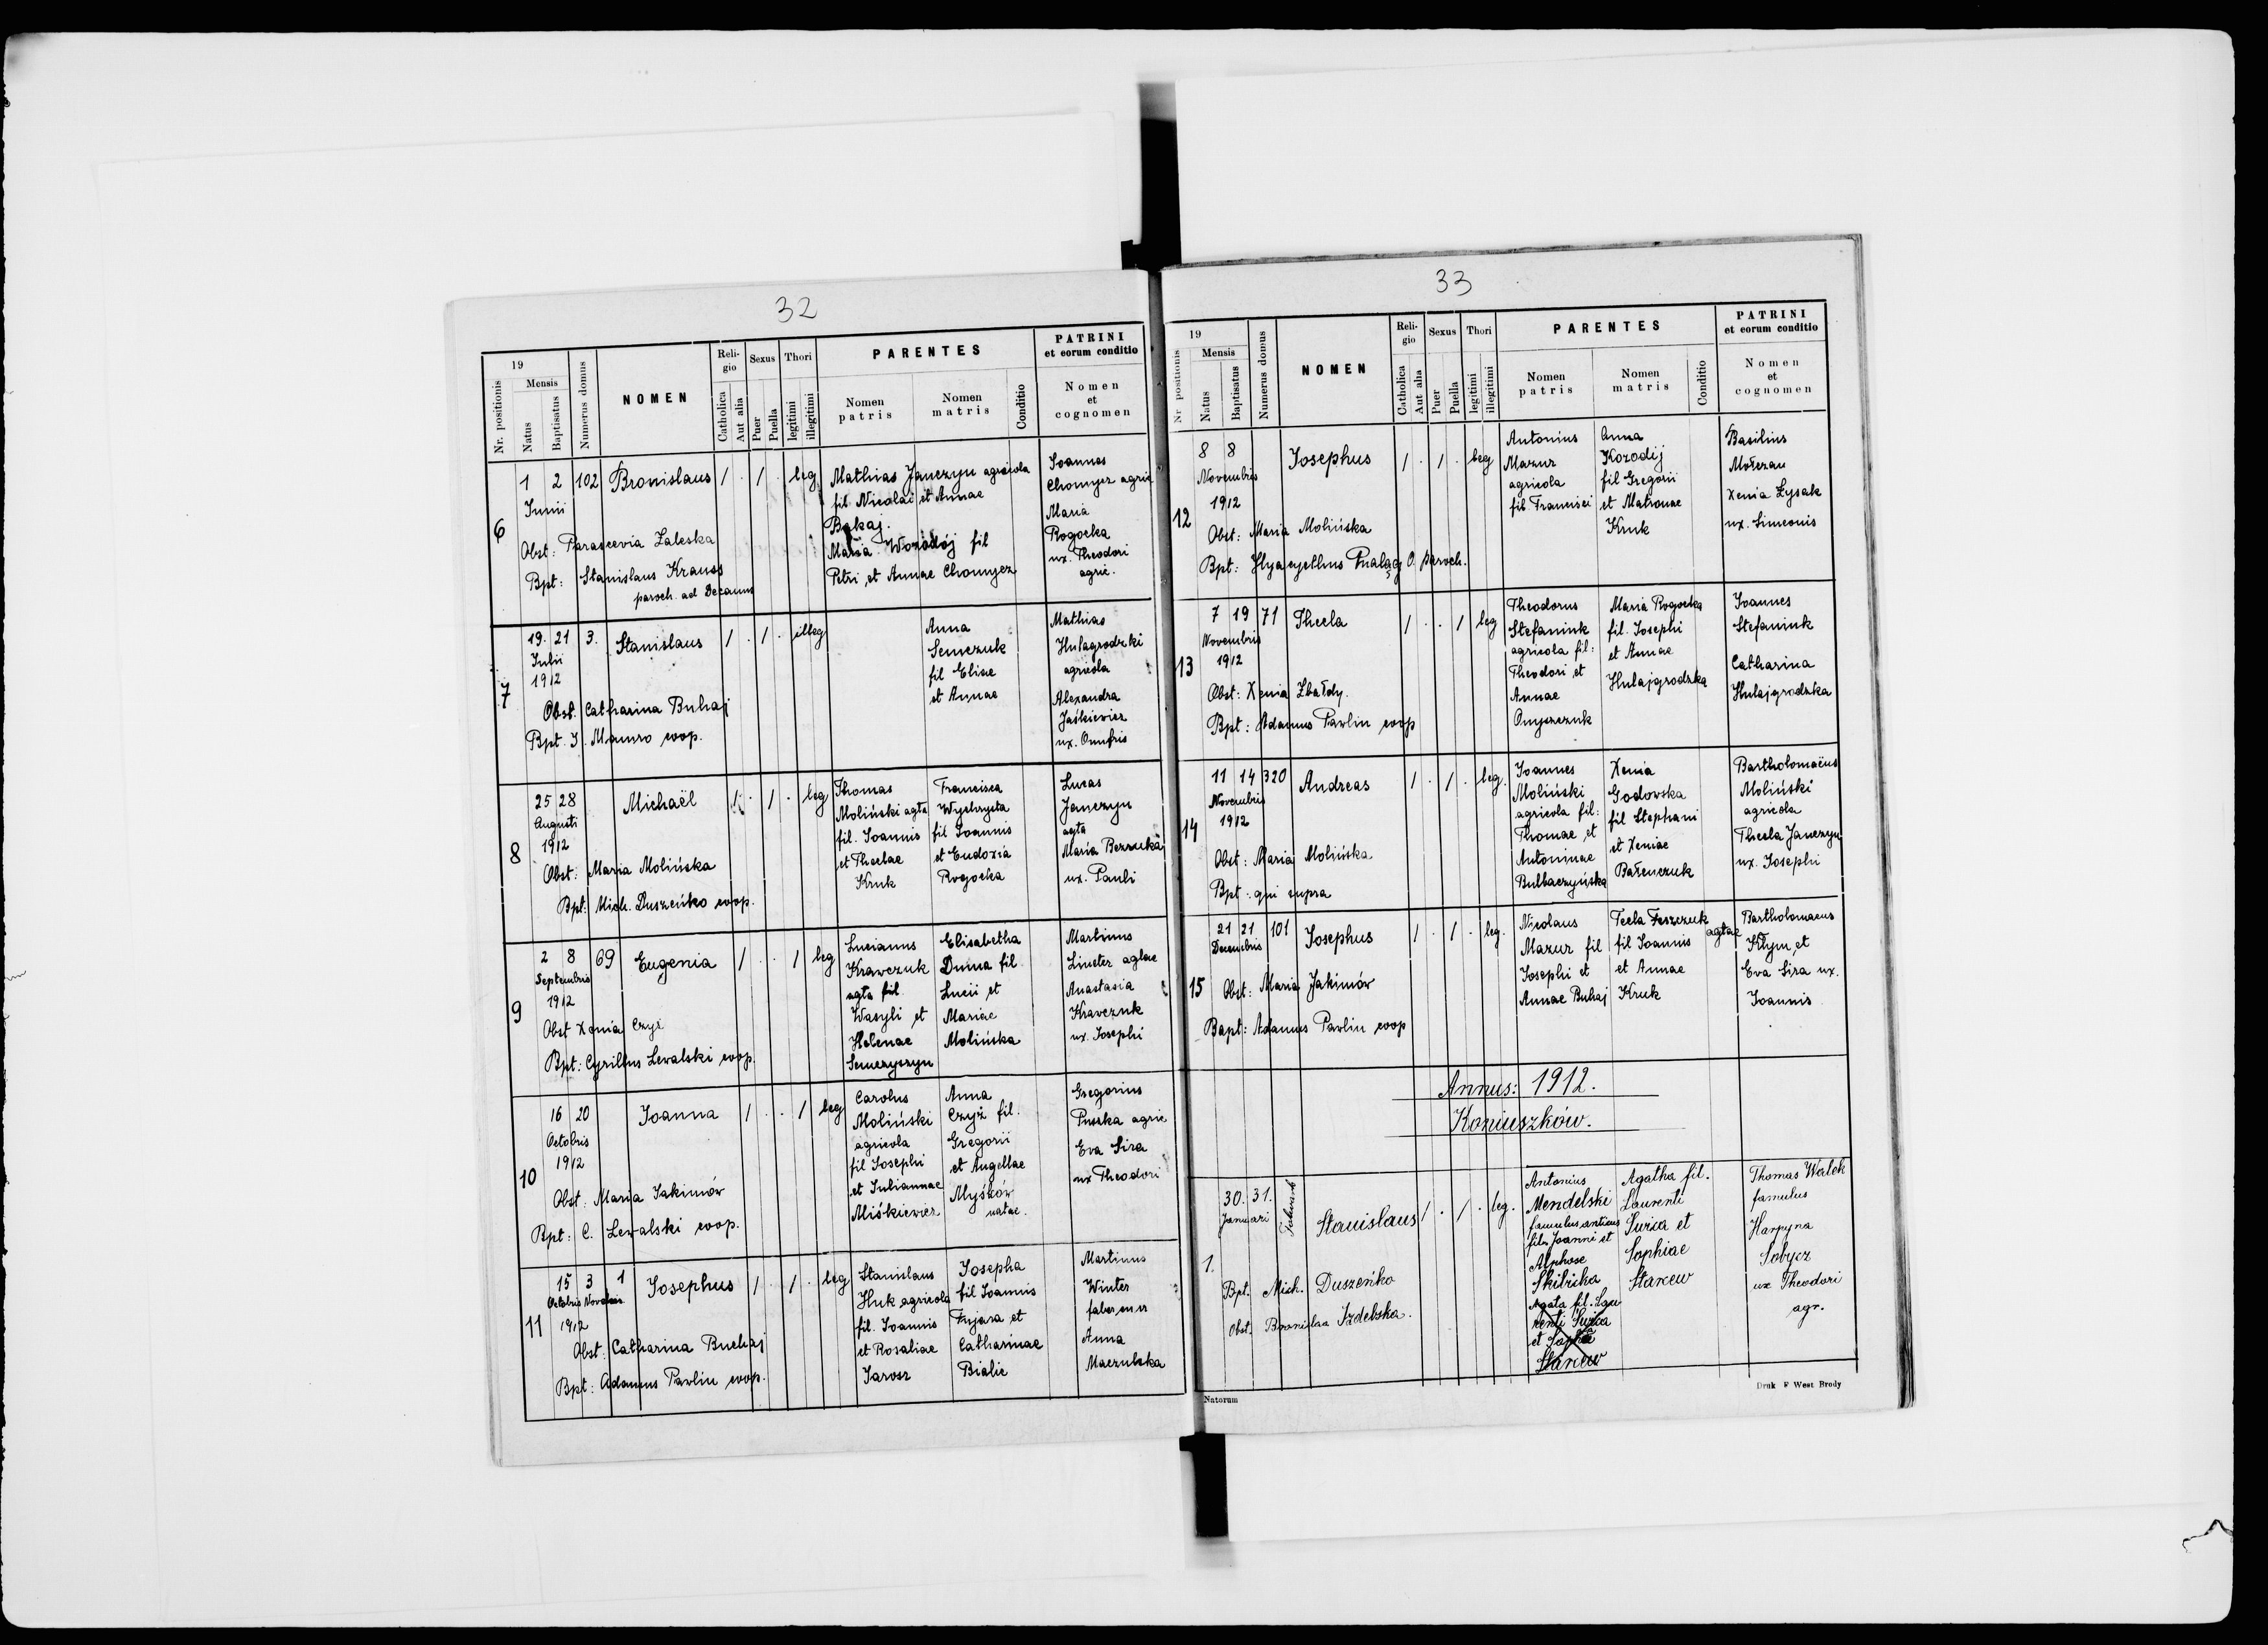 32
19
Nr. positionis
Mensis
Natus
Baptisatus
Numerus domus
NOMEN
Reli-
gio
Catholica
Aut alia
Sexus
Puer
Puella
Thori
legitimi
illegitimi
PARENTES
Nomen
patris
Nomen
matris
Conditio
PATRINI
et eorum conditio
Nomen
et
cognomen
6
1 2 102 Bronislaus 1 . 1 . leg
Junii
Obst: Parascevia Zaleska
Bpt: Stanislaus Krauss
paroch. ad Decanus
Mathias Janczyn agricola
fil. Nicolai et Annae
Bakaj.
Maria Wozodój fil
Petri et Annae Chomycz
Ioannes
Chomycz agric
Maria
Rogocka
ux. Theodori
agric.
7
19. 21 3. Stanislaus 1 . 1 . illeg
Julii
1912
Obst. Catharina Buhaj
Bpt. I. Mauro coop.
Anna
Semczuk
fil Eliae
et Annae
Mathias
Hulagrodzki
agricola
Alexandra
Jaśkiewicz
ux. Onufris
8
25 28 Michaël 1 . 1 . leg
Augusti
1912
Obst: Maria Molińska
Bpt: Mich. Duszeńko coop.
Thomas
Moliński agta
fil. Ioannis
et Theclae
Kruk
Francisca
fil Ioannis
et Eudoxia
Rogocka
Lucas
Janczyn
agta
Maria Bezruka
ux. Pauli
9
2 8 69 Eugenia 1 . . 1 leg
Septembris
1912
Obst Xenia Czyż
Bpt: Cyrillus Lewalski coop.
Lucianus
Krawczuk
agta fil.
Wasyli et
Helenae
Semczyszyn
Elisabetha
Duma fil
Lucii et
Mariae
Molińska
Martinus
Lineter agtae
Anastasia
Krawczuk
ux. Iosephi
10
16 20 Ioanna 1 . . 1 leg
Octobris
1912
Obst: Maria Iakimów
Bpt: C. Lewalski coop.
Carolus
Moliński
agricola
fil Iosephi
et Iuliannae
Miśkiewicz
Anna
Czyż fil.
Gregorii
et Angellae
Myśków
natae.
Gregorius
Puszka agric
Eva Sira
ux Theodori
11
15 3 1 Iosephus 1 . 1 . leg
Octobris Novebris
1912
Obst: Catharina Buchaj
Bpt: Adamus Pawlin coop.
Stanislaus
Huk agricola
fil. Ioannis
et Rosaliae
Jarosz
Iosepha
fil Ioannis
Fujara et
Catharinae
Bialic
Martinus
Winter
Anna
Maczulska
33
19
Nr positionis
Mensis
Natus
Baptisatus
Numerus domus
NOMEN
Reli-
gio
Catholica
Aut alia
Sexus
Puer
Puella
Thori
legitimi
illegitimi
PARENTES
Nomen
patris
Nomen
matris
Conditio
PATRINI
et eorum conditio
Nomen
et
cognomen
12
8 8 Iosephus 1 . 1 . leg
Novembris
1912
Obst: Maria Molińska
Bpt: Hyacynthus O. paroch.
Antonius
Mazur
agricola
fil. Francisci
Anna
Kozodij
fil Gregorii
et Matronae
Kruk
Basilius
Mołczan
Xenia Łysak
ux. Simeonis
13
7 19 71 Thecla 1 . . 1 leg
Novembris
1912
Obst: Xenia Zbałdy.
Bpt: Adamus Pawlin coop
Theodorus
Stefaniuk
agricola fil:
Theodori et
Annae
Onyszczuk
Maria Rogocka
fil. Iosephi
et Annae
Hulajgrodzka
Ioannes
Stefaniuk
Catharina
Hulajgrodzka
14
11 14 320 Andreas 1 . 1 . leg.
Novembris
1912
Obst: Maria Molińska
Bpt: qui supra
Ioannes
Moliński
agricola fil:
Thomae et
Antoninae
Bulbaczyńska
Xenia
Godowska
fil Stephani
et Xeniae
Bałenczuk
Bartholomaëus
Moliński
agricola
Thecla Janczyn
ux. Iosephi
15
21 21 101 Iosephus 1 . 1 . leg.
Decembris
Obst: Maria Jakimów
Bapt: Adamus Pawlin coop
Nicolaus
Mazur fil
Iosephi et
Annae Buhaj
Tecla Feszczuk
fil Ioannis
et Annae
Kruk
agtae
Bartholomaeus
Kłym et
Eva Sira ux.
Ioannis
Annus: 1912.
Koniuszków.
1.
30. 31. Stanislaus 1 . 1 . leg.
Januari
Bpt. Mich. Duszeńko
Obst. Bronislaa Izdebska.
Antonius
Mendelski
famulus anticus
fil. Joanni et
Alphose
Skibicka
Agata fil. Lau
renti Surca
et Sophia
Starcew
Agatha fil.
Laurenti
Surca et
Sophiae
Starcew
Thomas Walek
famulus
Harpyna
Sobycz
ux Theodori
agr.
Natorum
Druk F West Brody